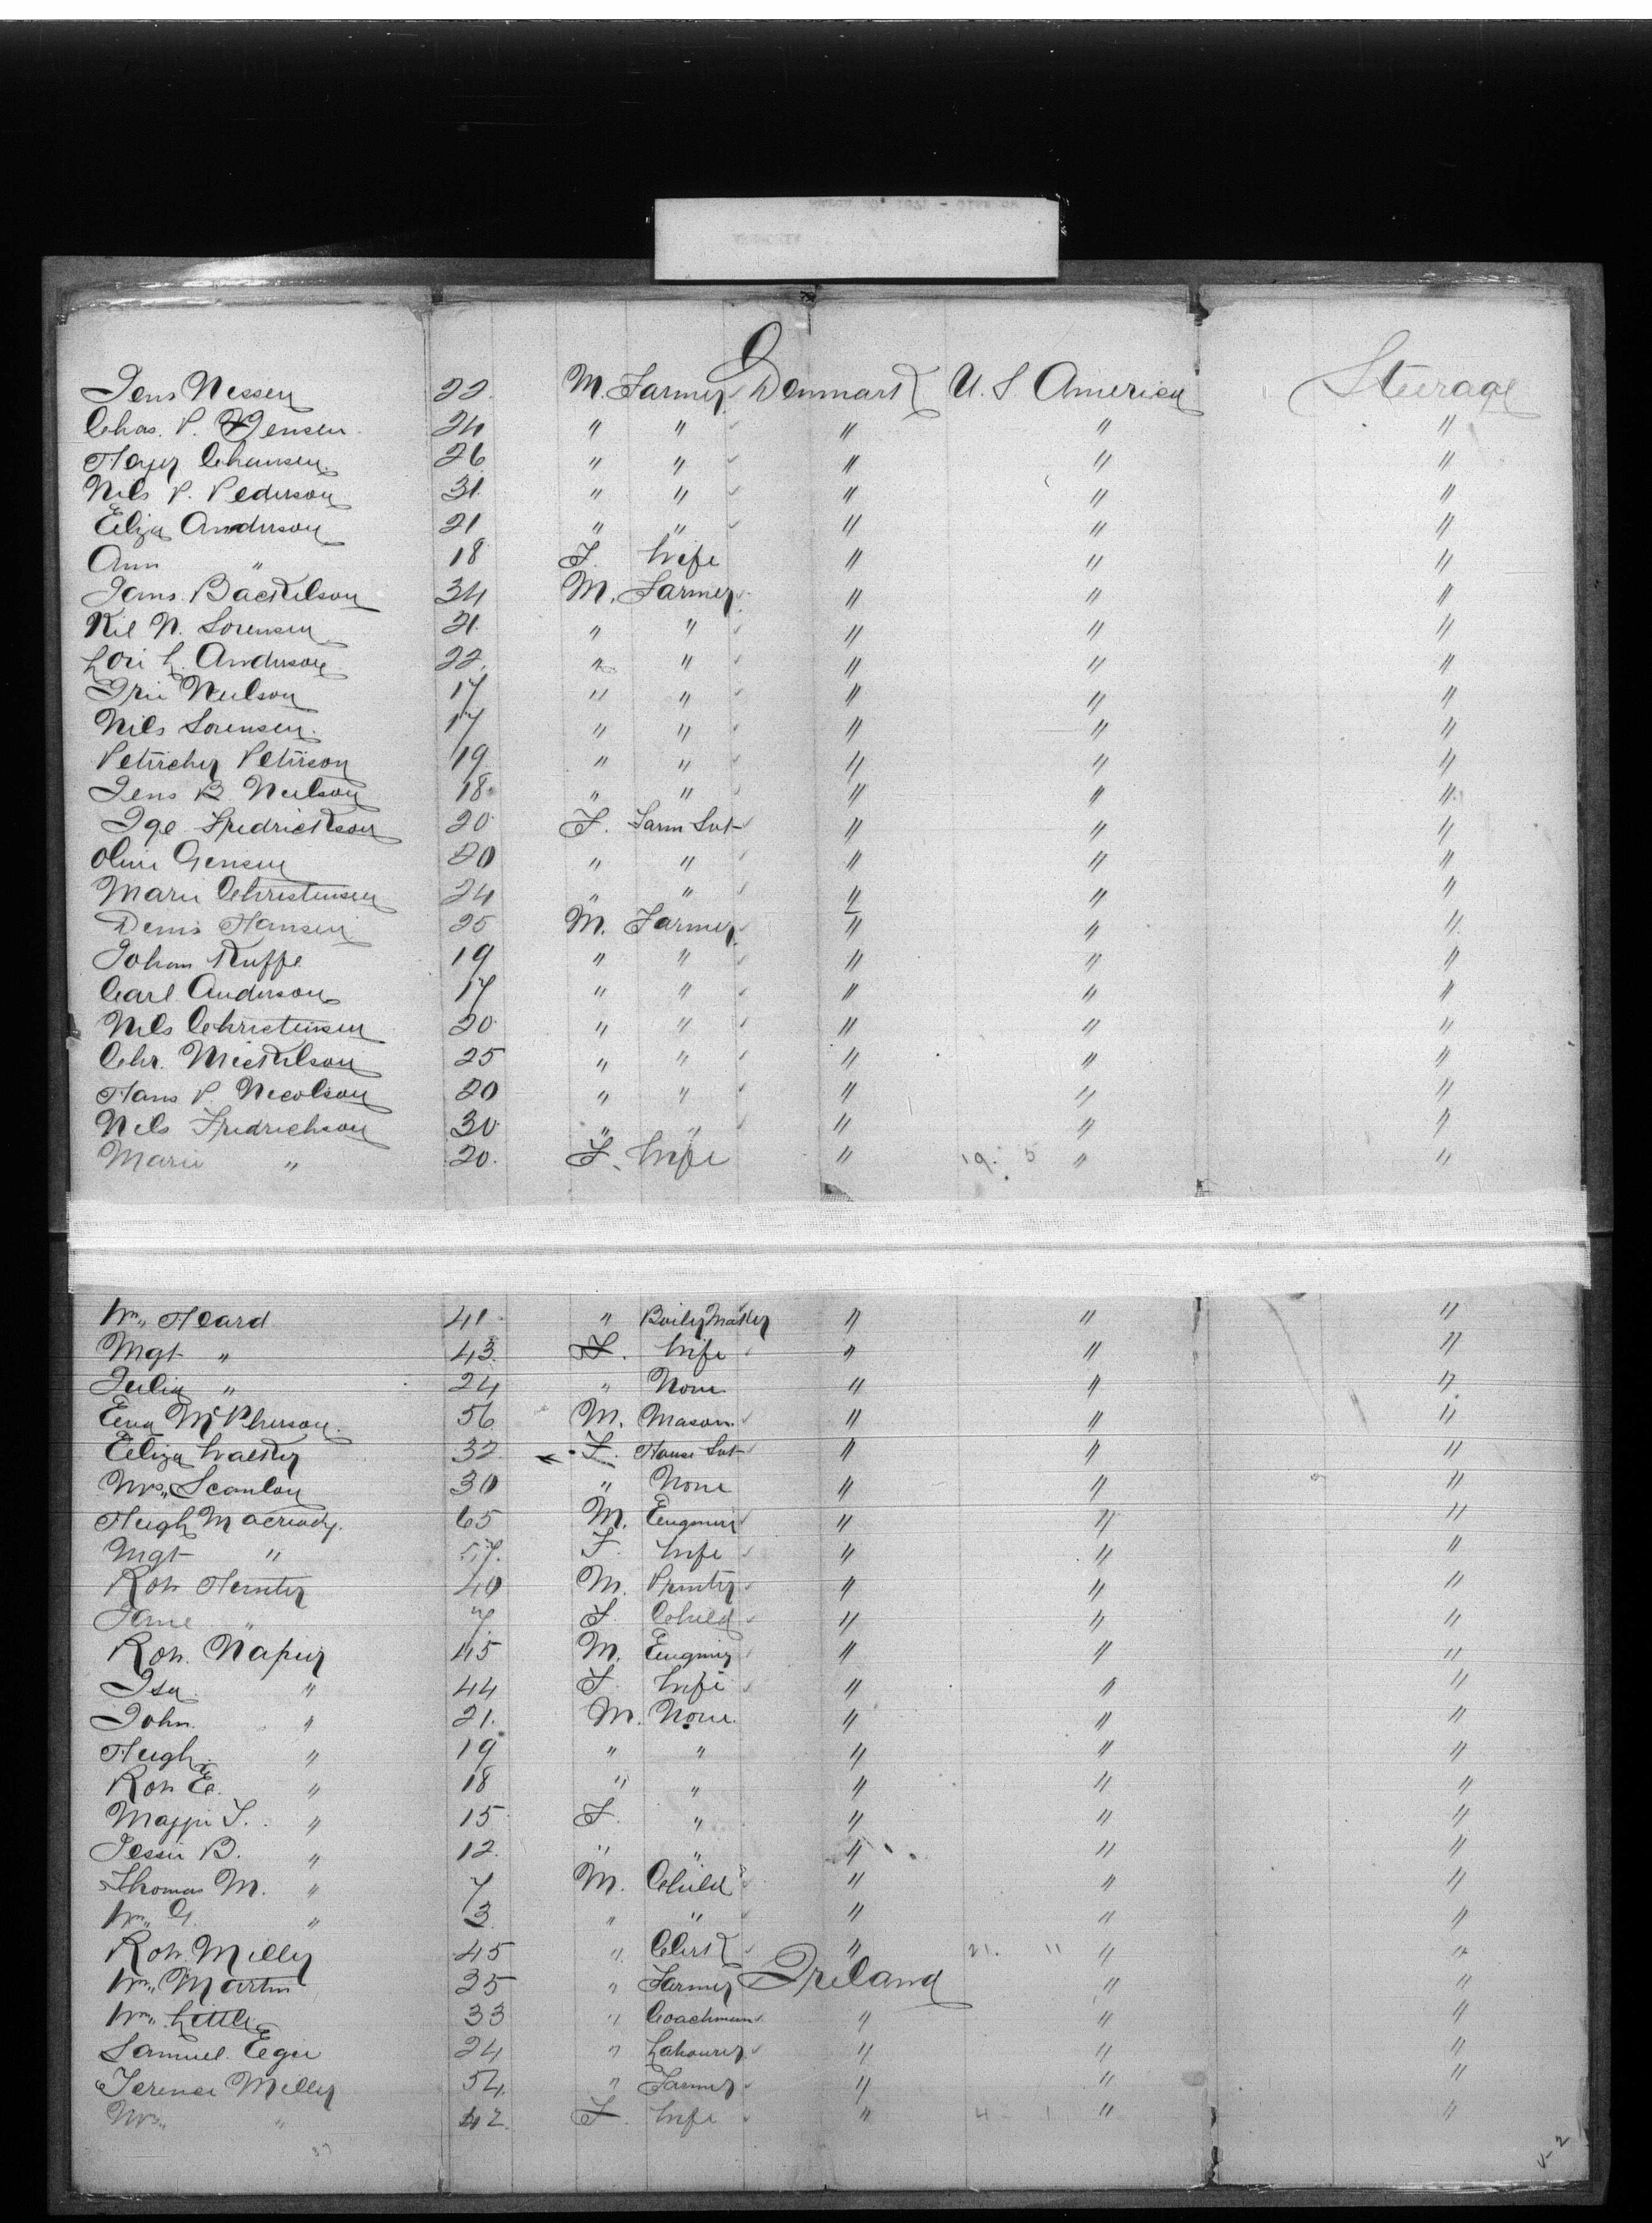 Jens Nessen 22. M. Farmer Denmark U.S. America Steerage
Chas. P. Jensen 24 " " " " "
Hayer Chansen 26 " " " " "
Nils P. Pederson 31. " " " " "
Eliza Anderson 21 " " " " "
Ann " 18 F. Wife " " "
Jams. Backelson 34 M. Farmer " " "
Kil N. Sorensen 21. " " " " "
Lori L. Anderson 22. " " " " "
Neilson 17 " " " " "
Nils Sorensen. 17 " " " " "
Petircher Peterson 19 " " " " "
Jens B Neilson 18 " " " " "
Ige Fredrickson 20 F. Farm Svt " " "
Oline Gensen 20 " " " " "
Marie Christensen 24 " " " " "
Denis Hansen 25 M. Farmer " " "
Johan Kuffe 19 " " " " "
Carl Anderson 17 " " " " "
Nils Christensen 20 " " " " "
Chr. Mickelson 25 " " " " "
Hans P. Nicolson 20 " " " " "
Nils Fredrichson 30 " " " " "
Marie " 20. F. Wife " 19. 5 " "
Wm. Heard 41. " Boiler Maker " " "
Mgt " 43. F. Wife " " "
Julia " 24 " None " " "
McPherson 56 M. Mason " " "
Eliza Walker 32 F. House Svt " " "
Mrs. Scanlon 30 " None " " "
Hugh Macready. 65 M. Engineer " " "
Mgt " 57. F. Wife " " "
Rob Hunter 40 M. Printer " " "
Jane " 7 F. Child " " "
Rob. Napier 45 M. Engineer " " "
Isa. " 44 F. Wife " " "
John. " 21. M. None. " " "
Hugh. " 19 " " " " "
Rob E. " 18 " " " " "
Maggie T. " 15 F. " " " "
Jessie B. " 12. " " " " "
Thomas M. " 7 M. Child " " "
Wm. G. " 3. " " " " "
Rob. Miller 45 " Clerk " 21. 11 " "
Wm. Martin 25 " Farmer Ireland " "
Wm. Little 33 " Coachman " " "
Samuel. Egie 24 " Labourer " " "
Terence Miller 54. " Farmer " " "
Mrs. " 42. F. Wife " 4 - 1 " "
V-2